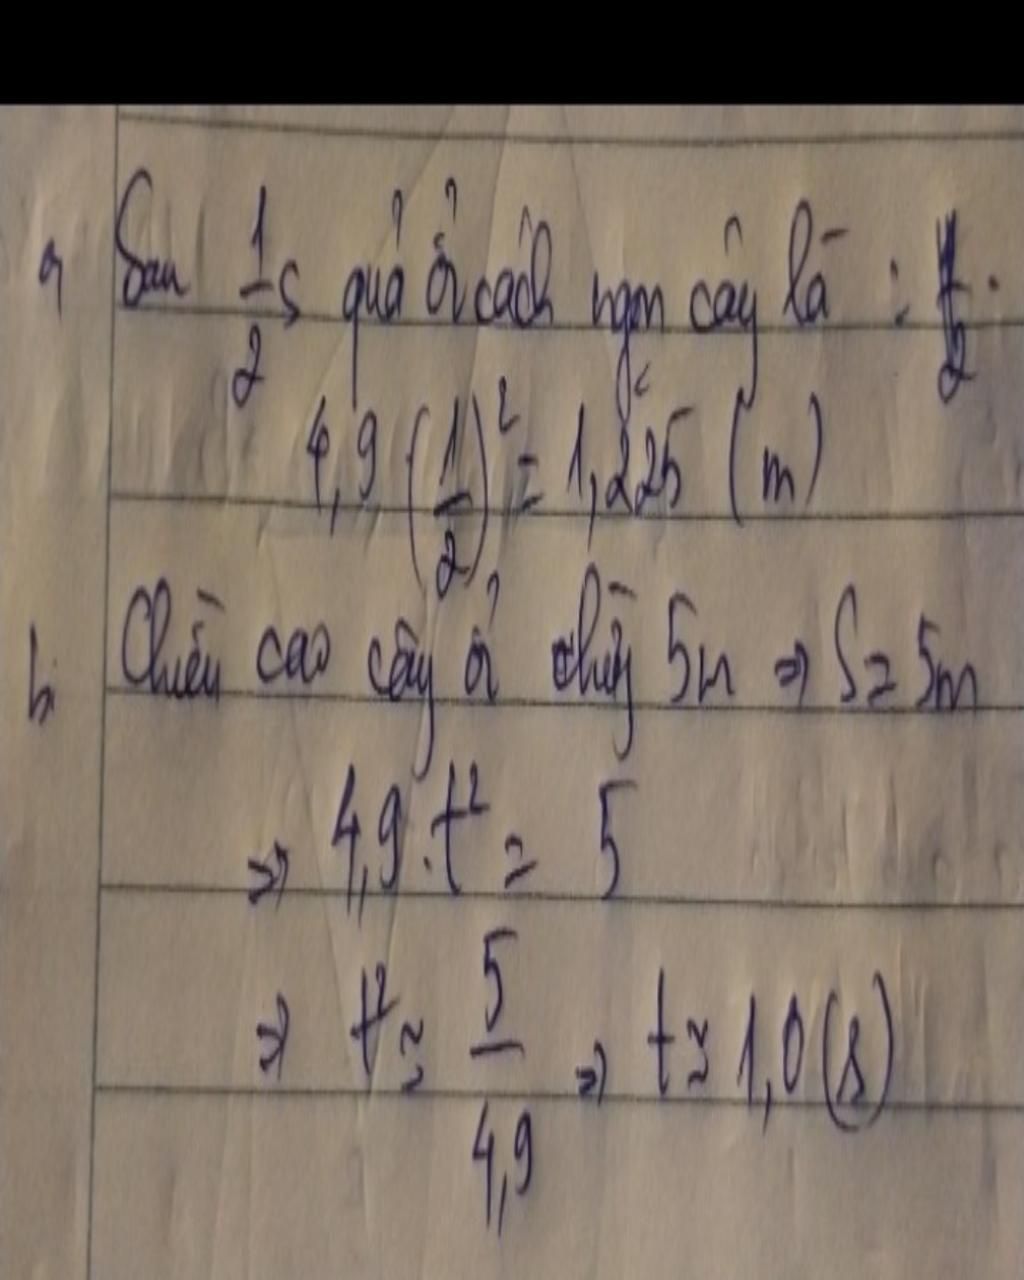 a, Sau 1/2 s quả ổi cách ngọn cây là :
4,9 (1/2)² = 1,225 (m)
b. Chiều cao cây ổi 5m => S = 5m
=> 4,9.t² = 5
=> t² ≈ 5/4,9 => t ≈ 1,0 (s)